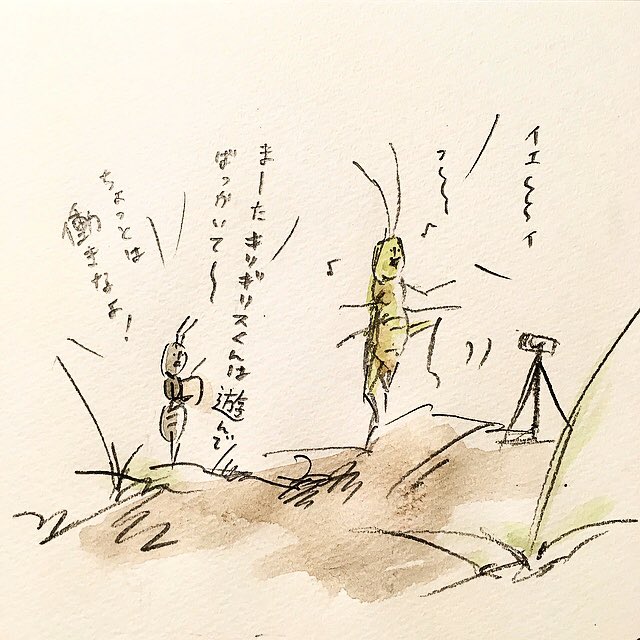 イエ〜〜イ
フ〜〜
まーたキリギリスくんは遊んで
ばっかいて〜
ちょっとは
働きなよ!